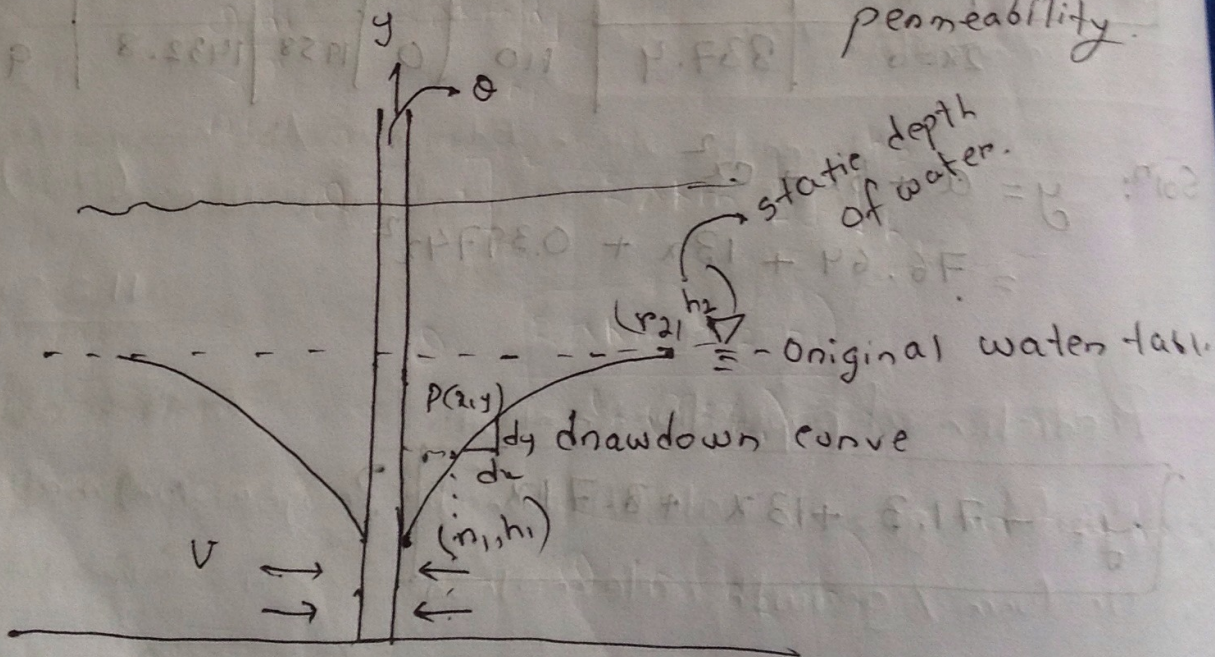 permeability.
y
Q
static depth
of water.
(r2, h2
Original water tabl
P(x,y)
dy drawdown curve
dx
(r1, h1)
V